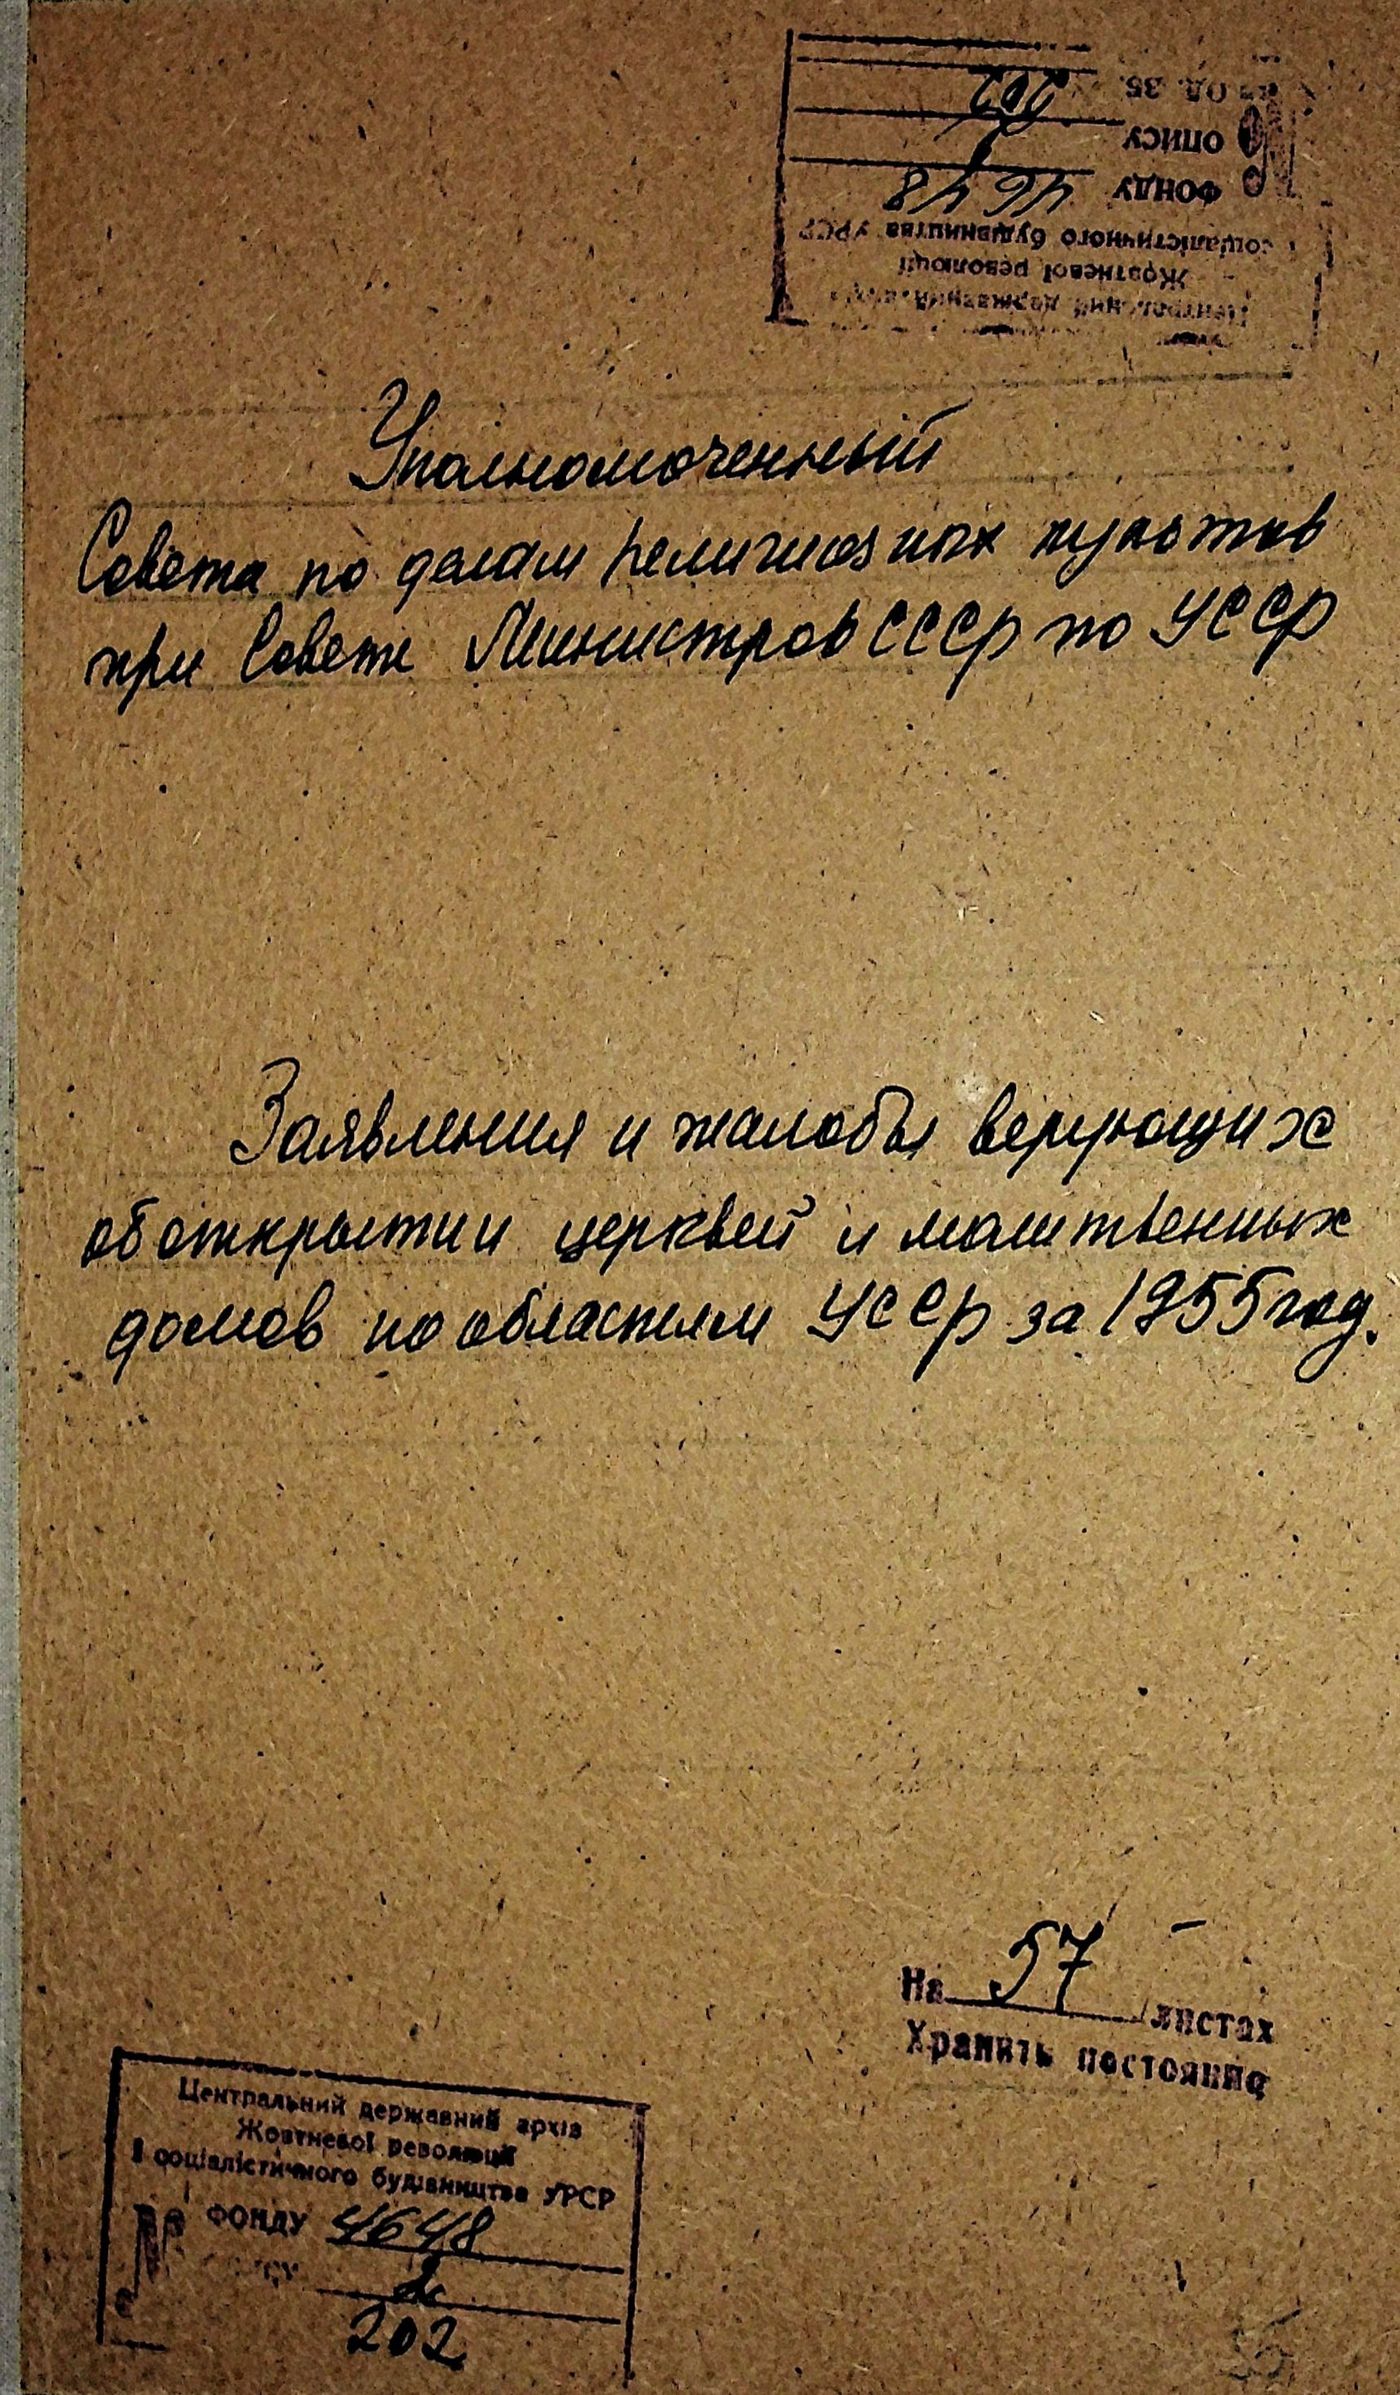 Центральний державний
Жовтневої революції
соціалістичного будівництва УРСР
ФОНДУ 4648
ОПИСУ
ОД. ЗБ. 202
Уполномоченный
Совета по делам религиозных культов
при Совете Министров СССР по УССР
Заявления и жалобы верующих
об открытии церквей и молитвенных
домов по областям УССР за 1955 год.
На 57 листах
Хранить постоянно
Центральний державний архів
Жовтневої революції
і соціалістичного будівництва УРСР
ФОНДУ 4648
2
202